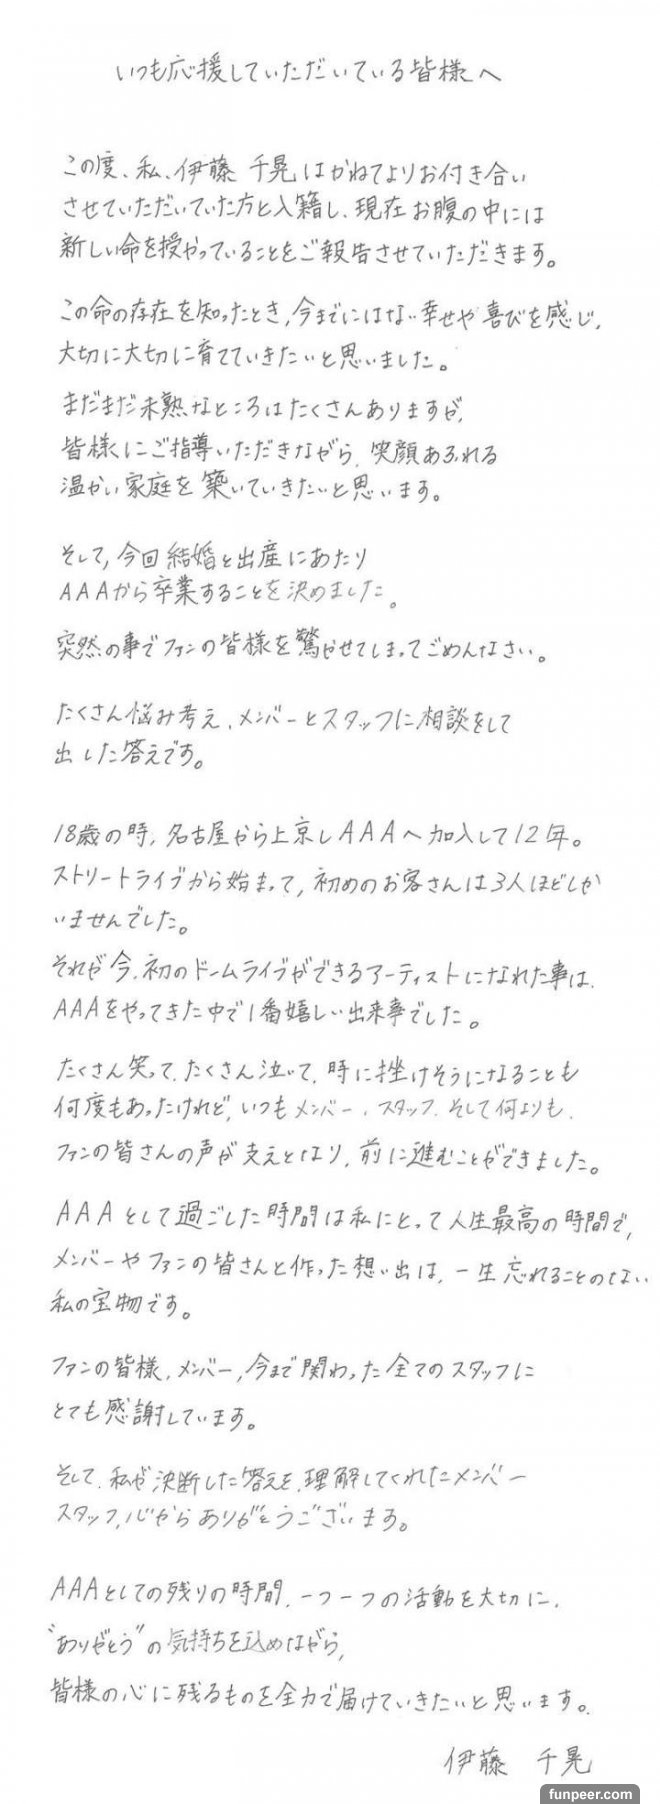 いつも応援していただいている皆様へ
この度、私、伊藤 千晃はかねてよりお付き合い
させていただいていた方と入籍し、現在お腹の中には
新しい命を授かっていることをご報告させていただきます。
この命の存在を知ったとき、今までにはない幸せや喜びを感じ、
大切に大切に育てていきたいと思いました。
まだまだ未熟なところはたくさんありますが、
皆様にご指導いただきながら、笑顔あふれる
温かい家庭を築いていきたいと思います。
そして、今回結婚と出産にあたり
AAAから卒業することを決めました。
突然の事でファンの皆様を驚かせてしまってごめんなさい。
たくさん悩み考え、メンバーとスタッフに相談をして
出した答えです。
18歳の時、名古屋から上京しAAAへ加入して12年。
ストリートライブから始まって、初めのお客さんは3人ほどしか
いませんでした。
それが今、初のドームライブができるアーティストになれた事は、
AAAをやってきた中で1番嬉しい出来事でした。
たくさん笑って、たくさん泣いて、時に挫けそうになることも
何度もあったけれど、いつもメンバー、スタッフ、そして何よりも、
ファンの皆さんの声が支えとなり、前に進むことができました。
AAAとして過ごした時間は私にとって人生最高の時間で、
メンバーやファンの皆さんと作った想い出は、一生忘れることのない
私の宝物です。
ファンの皆様、メンバー、今まで関わった全てのスタッフに
とても感謝しています。
そして、私が決断した答えを、理解してくれたメンバー
スタッフ、心からありがとうございます。
AAAとしての残りの時間、一つ一つの活動を大切に、
"ありがとう"の気持ちを込めながら、
皆様の心に残るものを全力で届けていきたいと思います。
伊藤 千晃
funpeer.com